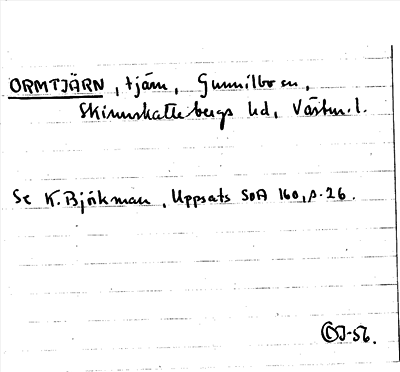 ORMTJÄRN, tjärn, Gunnilbo sn,
Skinnskattebergs hd, Västm. l.
Se K. Björkman, Uppsats SOA 160, s. 26.
CJ-56.